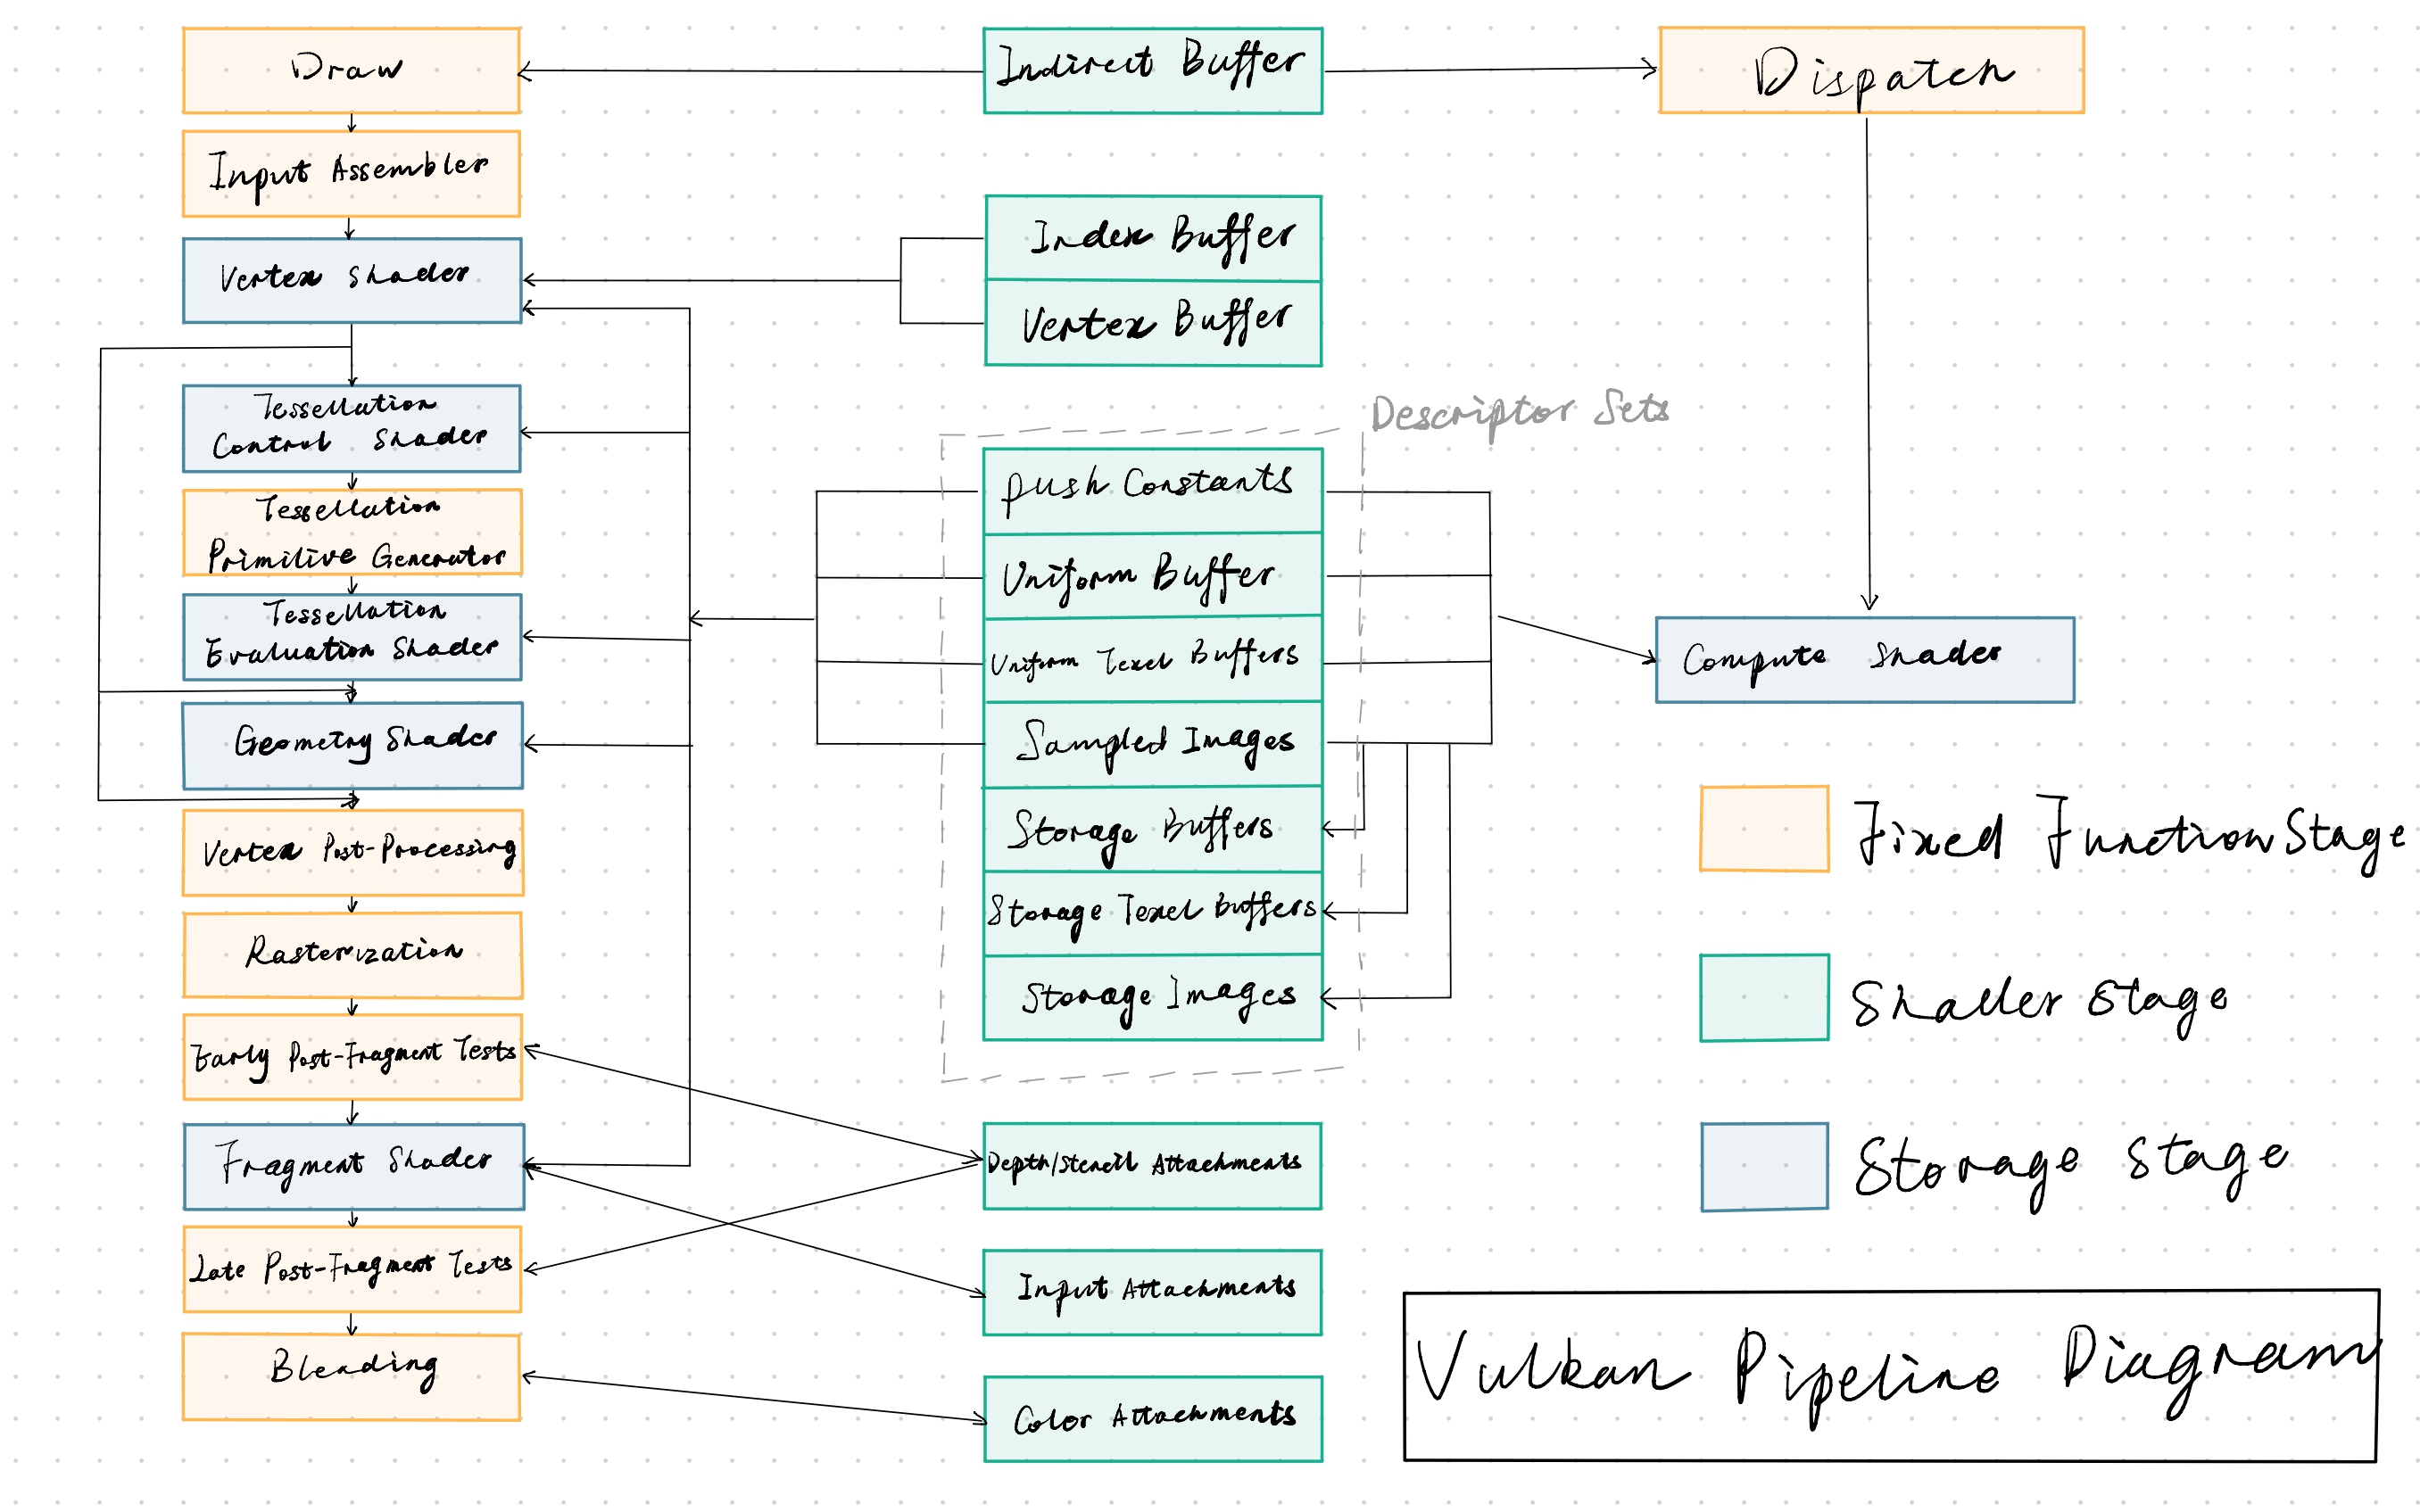 Draw
Input Assembler
Vertex Shader
Tessellation
Control Shader
Tessellation
Primilive Generator
Tessellation
Evaluation Shader
Geometry Shader
Vertex Post-Processing
Rasterization
Early Post-Fragment Tests
Fragment Shader
Late Post-Fragment Tests
Blending
Indirect Buffer
Index Buffer
Vertex Buffer
Descriptor Sets
Push Constants
Uniform Buffer
Uniform Texel Buffers
Sampled Images
Storage Buffers
Storage Texel Buffers
Storage Images
Depth/Stencil Attachments
Input Attachments
Color Attachments
Dispatch
Compute Shader
Fixed Function Stage
Shader Stage
Storage Stage
Vulkan Pipeline Diagram